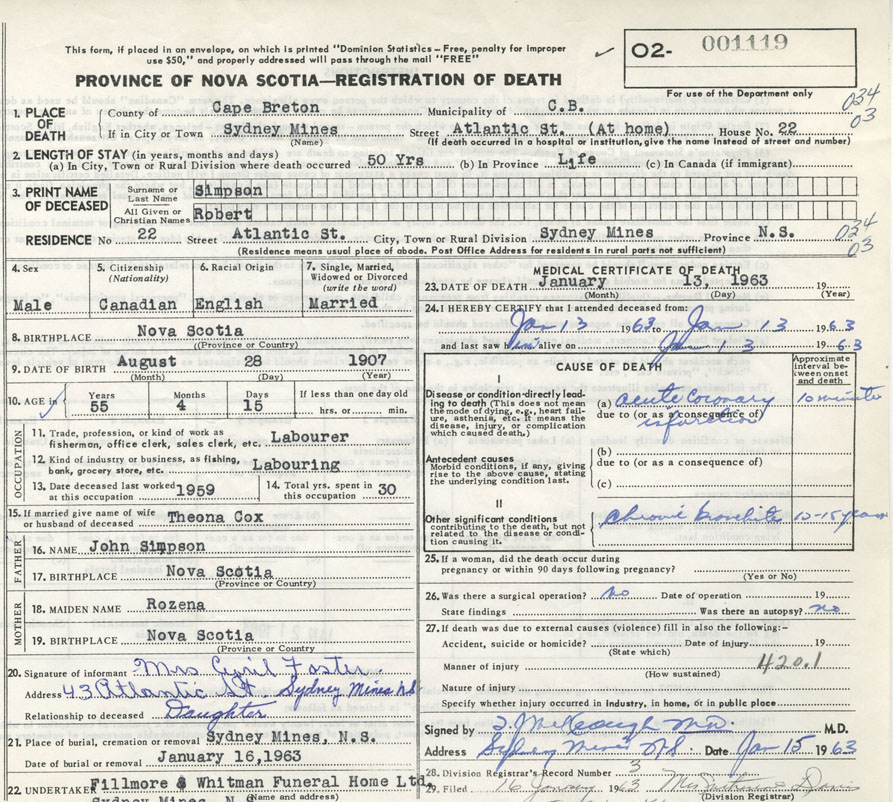 This form, if placed in an envelope, on which is printed "Dominion Statistics – Free, penalty for improper
use $50," and properly addressed will pass through the mail "FREE"
O2- 001119
PROVINCE OF NOVA SCOTIA—REGISTRATION OF DEATH
For use of the Department only
034
03
1. PLACE OF DEATH
County of Cape Breton Municipality of C.B.
If in City or Town Sydney Mines Street Atlantic St. (At home) House No. 22
(Name) (If death occurred in a hospital or institution, give name instead of street and number)
2. LENGTH OF STAY (in years, months and days)
(a) In City, Town or Rural Division where death occurred 50 Yrs (b) In Province Life (c) In Canada (if immigrant)
3. PRINT NAME OF DECEASED
Surname or Last Name Simpson
All Given or Christian Names Robert
RESIDENCE No 22 Street Atlantic St. City, Town or Rural Division Sydney Mines Province N.S.
034
03
(Residence means usual place of abode. Post Office Address for residents in rural parts not sufficient)
4. Sex
Male
5. Citizenship
(Nationality)
Canadian
6. Racial Origin
English
7. Single, Married,
Widowed or Divorced
(write the word)
Married
8. BIRTHPLACE Nova Scotia
(Province or Country)
9. DATE OF BIRTH August 28 1907
(Month) (Day) (Year)
10. AGE in
Years Months Days If less than one day old
55 4 15 hrs. or min.
OCCUPATION
11. Trade, profession, or kind of work as
fisherman, office clerk, sales clerk, etc. Labourer
12. Kind of industry or business, as fishing,
bank, grocery store, etc. Labouring
13. Date deceased last worked
at this occupation 1959
14. Total yrs. spent in
this occupation 30
15. If married give name of wife
or husband of deceased Theona Cox
FATHER
16. NAME John Simpson
17. BIRTHPLACE Nova Scotia
(Province or Country)
MOTHER
18. MAIDEN NAME Rozena
19. BIRTHPLACE Nova Scotia
(Province or Country)
20. Signature of informant Mrs Cyril Foster
Address 43 Atlantic St. Sydney Mines NS
Relationship to deceased Daughter
21. Place of burial, cremation or removal Sydney Mines, N.S.
Date of burial or removal January 16,1963
22. UNDERTAKER Fillmore & Whitman Funeral Home Ltd,
Sydney Mines, N.S
(Name and address)
MEDICAL CERTIFICATE OF DEATH
23. DATE OF DEATH January 13, 1963 19
(Month) (Day) (Year)
24. I HEREBY CERTIFY that I attended deceased from:
Jan 13 1963 to Jan 13 1963
and last saw him alive on Jan 13 1963
CAUSE OF DEATH
Approximate
interval between onset
and death
I
Disease or condition directly leading
to death (This does not mean
the mode of dying, e.g., heart failure,
asthenia, etc. It means the
disease, injury, or complication
which caused death.)
(a) acute coronary 10 minutes
due to (or as a consequence of)
infarction
Antecedent causes
Morbid conditions, if any, giving
rise to the above cause, stating
the underlying condition last.
(b)
due to (or as a consequence of)
(c)
II
Other significant conditions
contributing to the death, but not
related to the disease or condition
causing it.
chronic bronchitis 10-15 years
25. If a woman, did the death occur during
pregnancy or within 90 days following pregnancy?
(Yes or No)
26. Was there a surgical operation? no Date of operation 19
State findings Was there an autopsy? no
27. If death was due to external causes (violence) fill in also the following:–
Accident, suicide or homicide? Date of injury 19
(State which)
Manner of injury 420.1
(How sustained)
Nature of injury
Specify whether injury occurred in Industry, in home, or in public place
Signed by M.D.
Address Sydney Mines NS Date Jan 15 1963
28. Division Registrar's Record Number 3
29. Filed 16 January 1963 Mrs Davis
(Division Registrar)